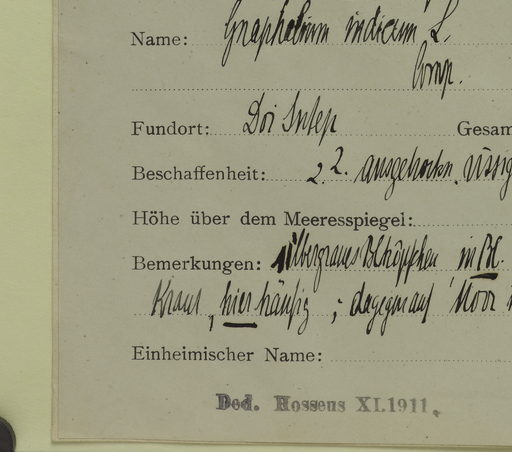 Name: Gnaphalium indicum L.
Comp.
Fundort: Doi Sutep Gesam
Beschaffenheit: z. Z. ausgetrockn.
Höhe über dem Meeresspiegel:
Bemerkungen: silbergraues Blköpfchen in Bl.
Kraut, hier häufig; dagegen auf Moor
Einheimischer Name:
Ded. Hosseus XI.1911.